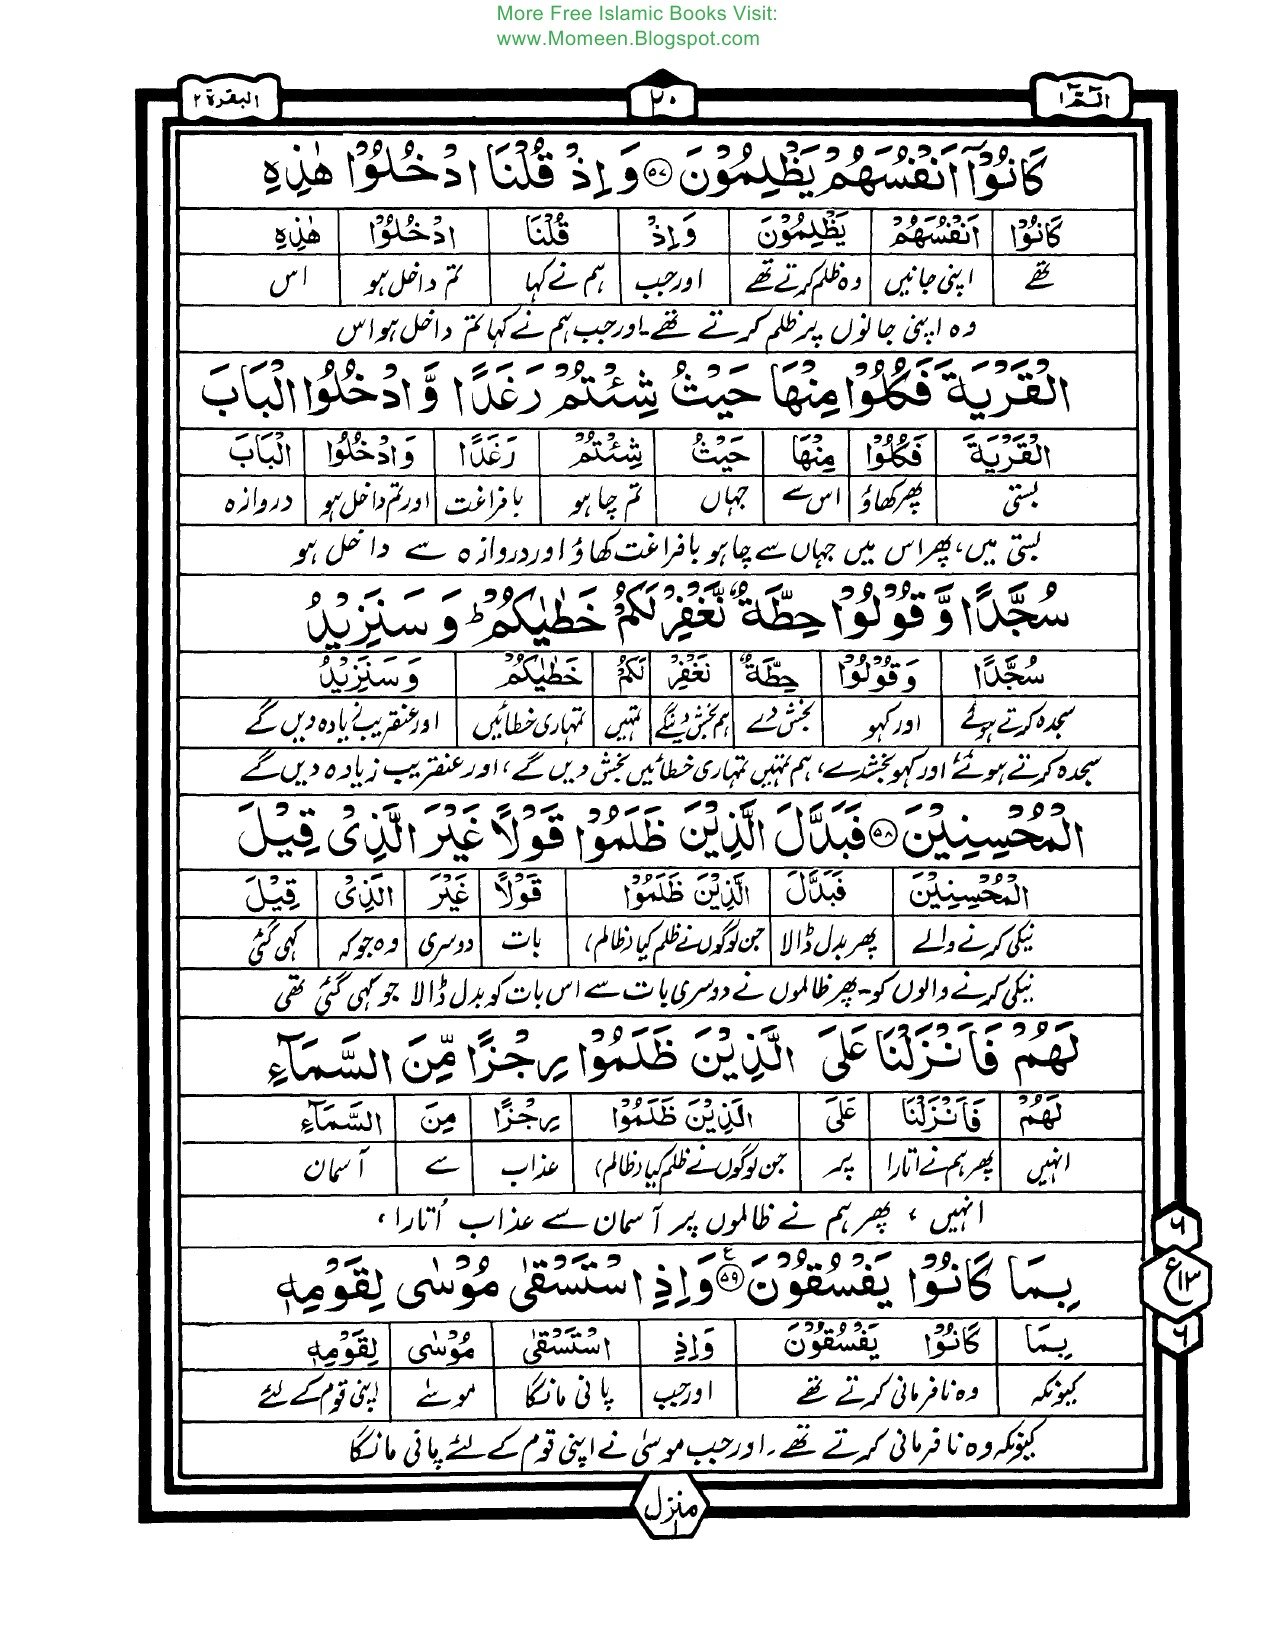 More Free Islamic Books Visit:
www.Momeen.Blogspot.com
الٓمّٓ ١
٢٠
البقرة ٢
كَانُوْۤا اَنْفُسَهُمْ يَظْلِمُوْنَ ﴿٥٧﴾ وَ اِذْ قُلْنَا ادْخُلُوْا هٰذِهِ
كَانُوْۤا اَنْفُسَهُمْ يَظْلِمُوْنَ وَ اِذْ قُلْنَا ادْخُلُوْا هٰذِهِ
تھے اپنی جانیں وہ ظلم کرتے تھے اور جب ہم نے کہا تم داخل ہو اس
وہ اپنی جانوں پر ظلم کرتے تھے۔ اور جب ہم نے کہا تم داخل ہو اس
الْقَرْيَةَ فَكُلُوْا مِنْهَا حَيْثُ شِئْتُمْ رَغَدًا وَّ ادْخُلُوا الْبَابَ
الْقَرْيَةَ فَكُلُوْا مِنْهَا حَيْثُ شِئْتُمْ رَغَدًا وَ ادْخُلُوا الْبَابَ
بستی پھر کھاؤ اس سے جہاں تم چاہو بافراغت اور تم داخل ہو دروازہ
بستی میں، پھر اس میں جہاں سے چاہو بافراغت کھاؤ اور دروازہ سے داخل ہو
سُجَّدًا وَّ قُوْلُوْا حِطَّةٌ نَّغْفِرْ لَكُمْ خَطٰيٰكُمْ ؕ وَ سَنَزِيْدُ
سُجَّدًا وَ قُوْلُوْا حِطَّةٌ نَغْفِرْ لَكُمْ خَطٰيٰكُمْ وَ سَنَزِيْدُ
سجدہ کرتے ہوئے اور کہو بخش دے ہم بخش دینگے تمہیں تمہاری خطائیں اور عنقریب زیادہ دیں گے
سجدہ کرتے ہوئے اور کہو بخشدے، ہم تمہیں تمہاری خطائیں بخش دیں گے، اور عنقریب زیادہ دیں گے
الْمُحْسِنِيْنَ ﴿٥٨﴾ فَبَدَّلَ الَّذِيْنَ ظَلَمُوْا قَوْلًا غَيْرَ الَّذِيْ قِيْلَ
الْمُحْسِنِيْنَ فَبَدَّلَ الَّذِيْنَ ظَلَمُوْا قَوْلًا غَيْرَ الَّذِيْ قِيْلَ
نیکی کرنے والے پھر بدل ڈالا جن لوگوں نے ظلم کیا (ظالم) بات دوسری وہ جو کہ کہی گئی
نیکی کرنے والوں کو۔ پھر ظالموں نے دوسری بات سے اس بات کو بدل ڈالا جو کہی گئی تھی
لَهُمْ فَاَنْزَلْنَا عَلَى الَّذِيْنَ ظَلَمُوْا رِجْزًا مِّنَ السَّمَآءِ
لَهُمْ فَاَنْزَلْنَا عَلَى الَّذِيْنَ ظَلَمُوْا رِجْزًا مِنَ السَّمَآءِ
انہیں پھر ہم نے اتارا پر جن لوگوں نے ظلم کیا (ظالم) عذاب سے آسمان
انہیں، پھر ہم نے ظالموں پر آسمان سے عذاب اُتارا،
بِمَا كَانُوْا يَفْسُقُوْنَ ﴿٥٩﴾ ع وَ اِذِ اسْتَسْقٰى مُوْسٰى لِقَوْمِهٖ
٦
ع ١٣
٦
بِمَا كَانُوْا يَفْسُقُوْنَ وَ اِذِ اسْتَسْقٰى مُوْسٰى لِقَوْمِهٖ
کیونکہ وہ نافرمانی کرتے تھے اور جب پانی مانگا موسےٰ اپنی قوم کے لئے
کیونکہ وہ نافرمانی کرتے تھے۔ اور جب موسیٰ نے اپنی قوم کے لئے پانی مانگا
منزل ١